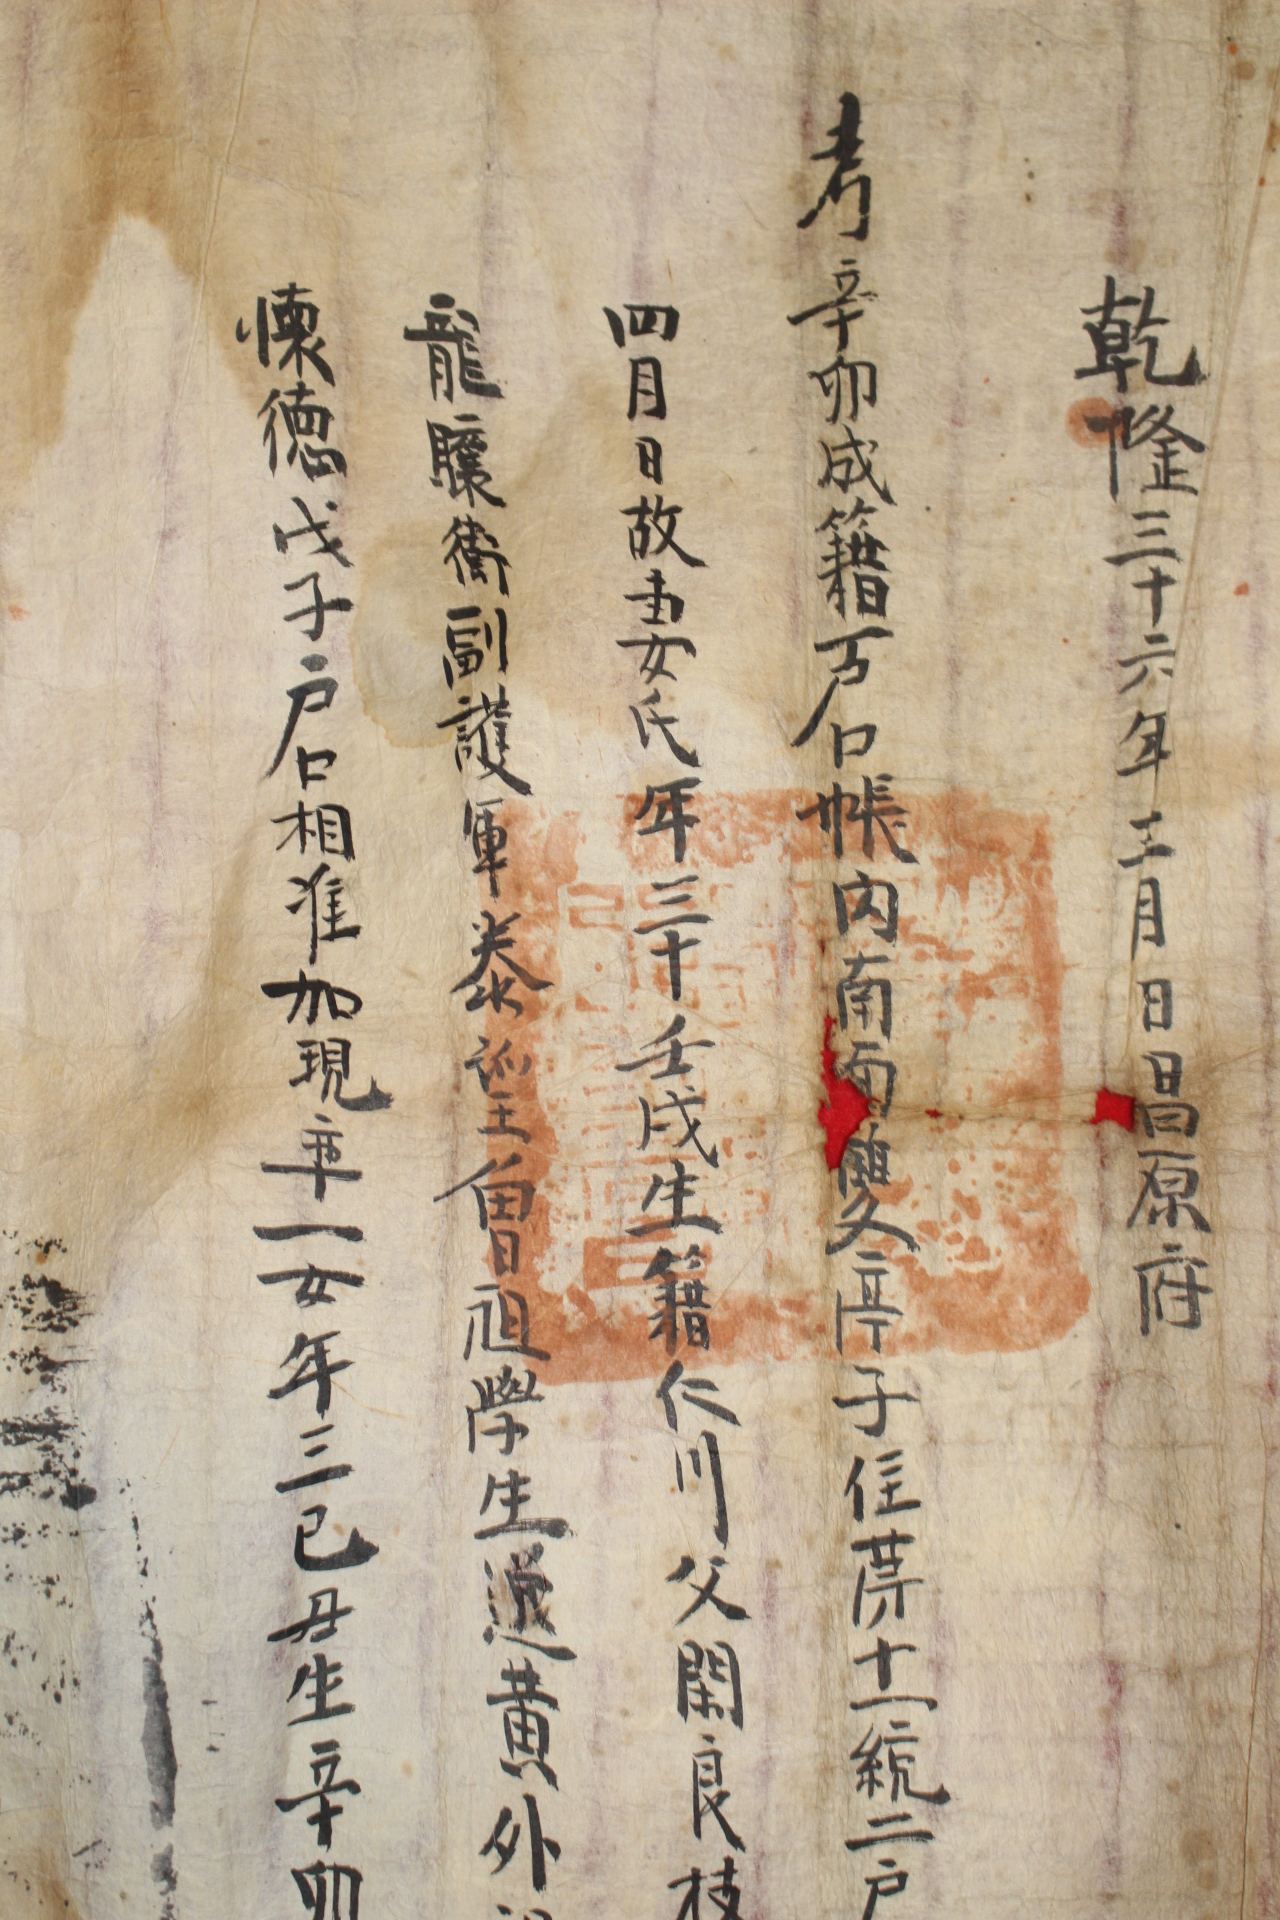 乾隆三十六年三月日昌原府
考辛卯成籍戶口帳內南面雙亭子住第十一統二戶
四月日故妻女氏年三十壬戌生籍仁川父閑良枝
龍驤衛副護軍泰 曾祖學生 黃外
懷德戊子戶口相准加現率一女年三己丑生辛卯